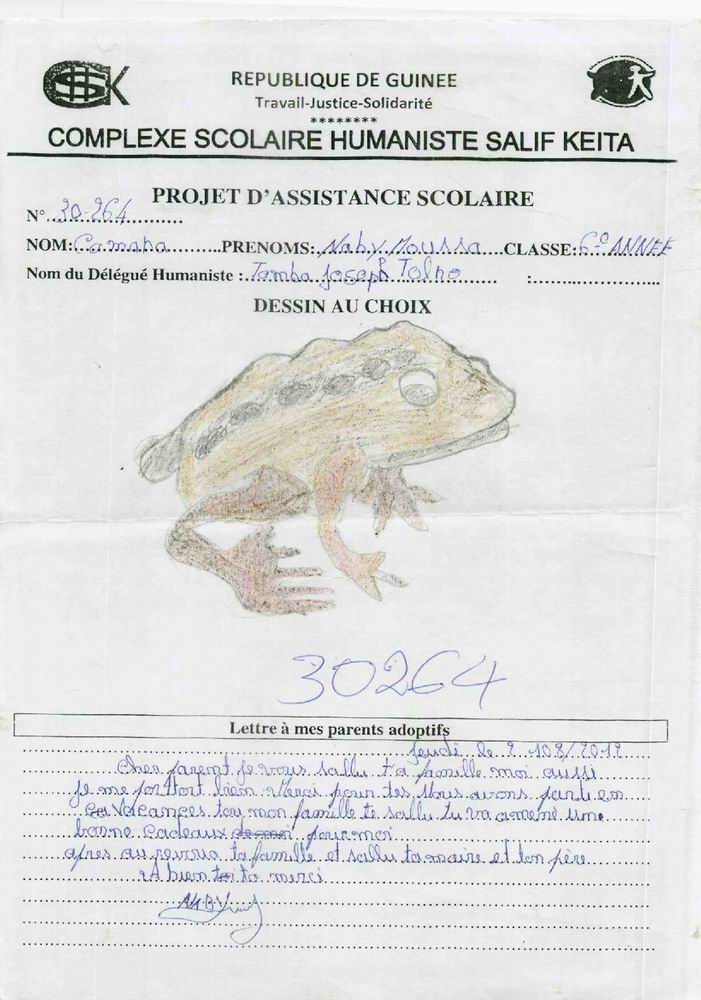 REPUBLIQUE DE GUINEE
Travail-Justice-Solidarité
********
COMPLEXE SCOLAIRE HUMANISTE SALIF KEITA
PROJET D'ASSISTANCE SCOLAIRE
N° 30-264
NOM: Camara PRENOMS: Naby Moussa CLASSE: 6e ANNEE
Nom du Délégué Humaniste : Tamba Joseph Tolno :
DESSIN AU CHOIX
30264
Lettre à mes parents adoptifs
Jeudi le 2 108/2012
Cher parent je vous sallu ta famille moi aussi
je me portort bien merci pour tes Nous avons partu en
Vacances tou mon famille te sallu tu va amené une
bonne Cadeaux pour moi
apres au revrio ta famille et sallu ta maire et ton père
A bien to merci
NABY